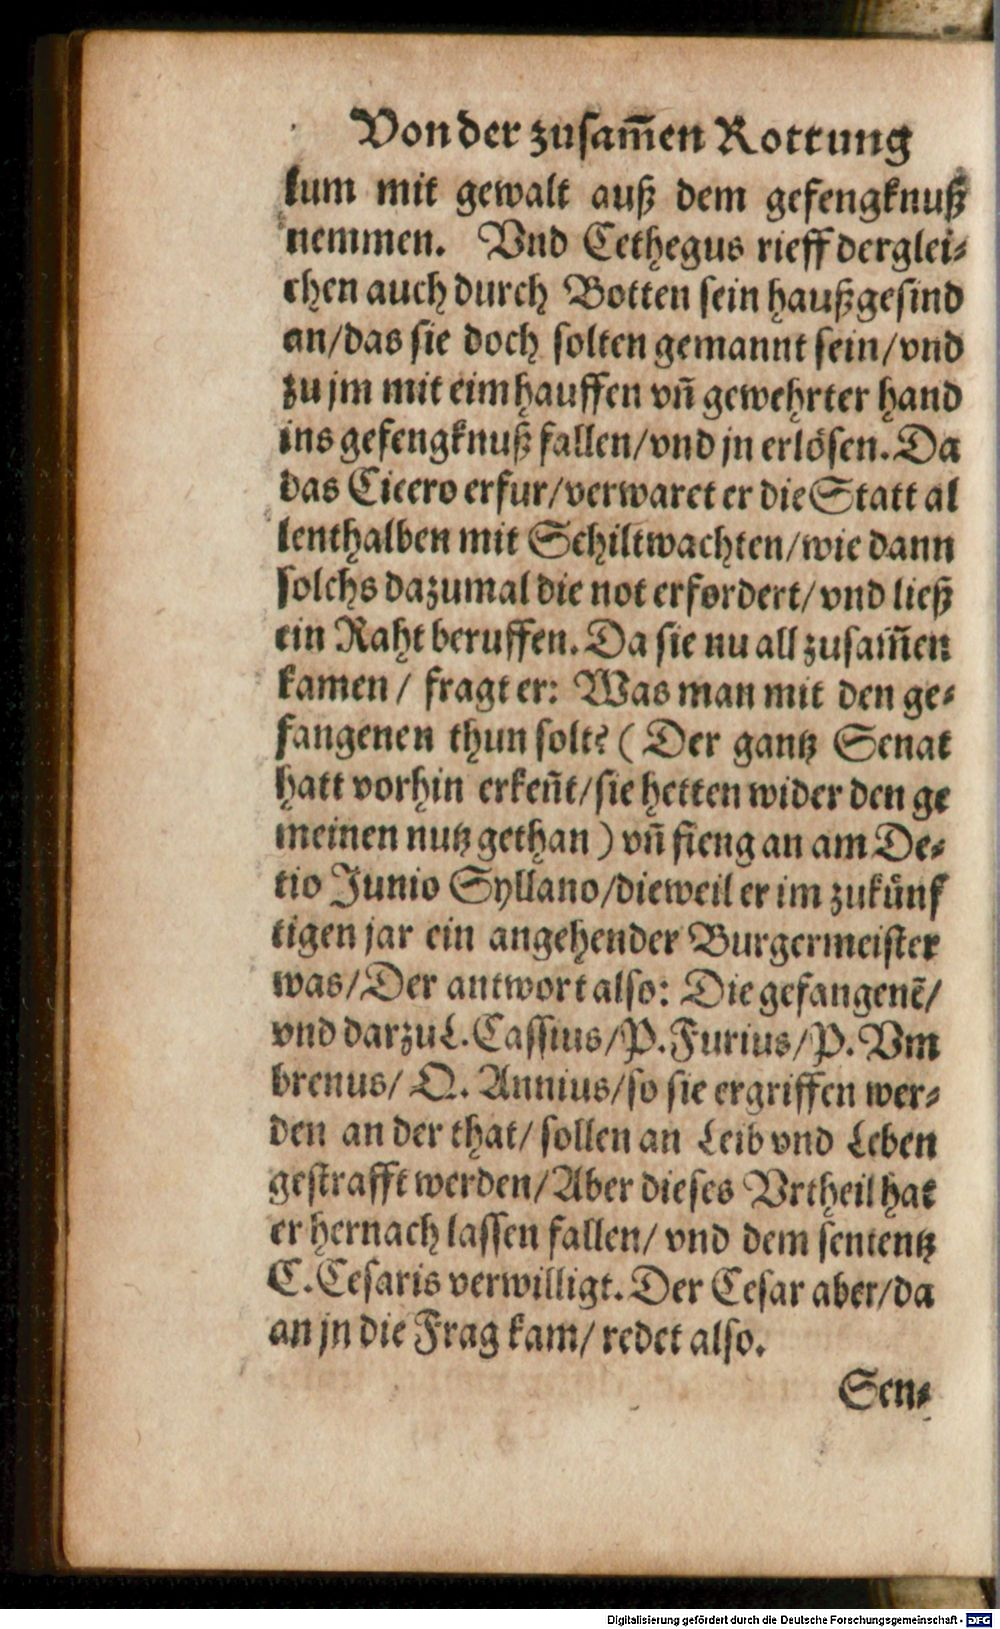 Von der zusam̃en Rottung
lum mit gewalt auß dem gefengknuß
nemmen. Vnd Cethegus rieff derglei⸗
chen auch durch Botten sein haußgesind
an/das sie doch solten gemannt sein/vnd
zu jm mit eim hauffen vñ gewehrter hand
ins gefengknuß fallen/vnd jn erlösen. Da
das Cicero erfur/verwaret er die Statt al
lenthalben mit Schiltwachten/wie dann
solchs dazumal die not erfordert/vnd ließ
ein Raht beruffen. Da sie nu all zusam̃en
kamen / fragt er: Was man mit den ge⸗
fangenen thun solt? (Der gantz Senat
hatt vorhin erkeñt/sie hetten wider den ge
meinen nutz gethan) vñ fieng an am De⸗
tio Junio Syllano/dieweil er im zukünf
tigen jar ein angehender Burgermeister
was/Der antwort also: Die gefangenẽ/
vnd darzu L. Cassius/P. Furius/P. Vm
brenus/ Q. Annius/so sie ergriffen wer⸗
den an der that/ sollen an Leib vnd Leben
gestrafft werden/Aber dieses Vrtheil hat
er hernach lassen fallen/ vnd dem sententz
C. Cesaris verwilligt. Der Cesar aber/da
an jn die Frag kam/ redet also.
Sen⸗
Digitalisierung gefördert durch die Deutsche Forschungsgemeinschaft - DFG